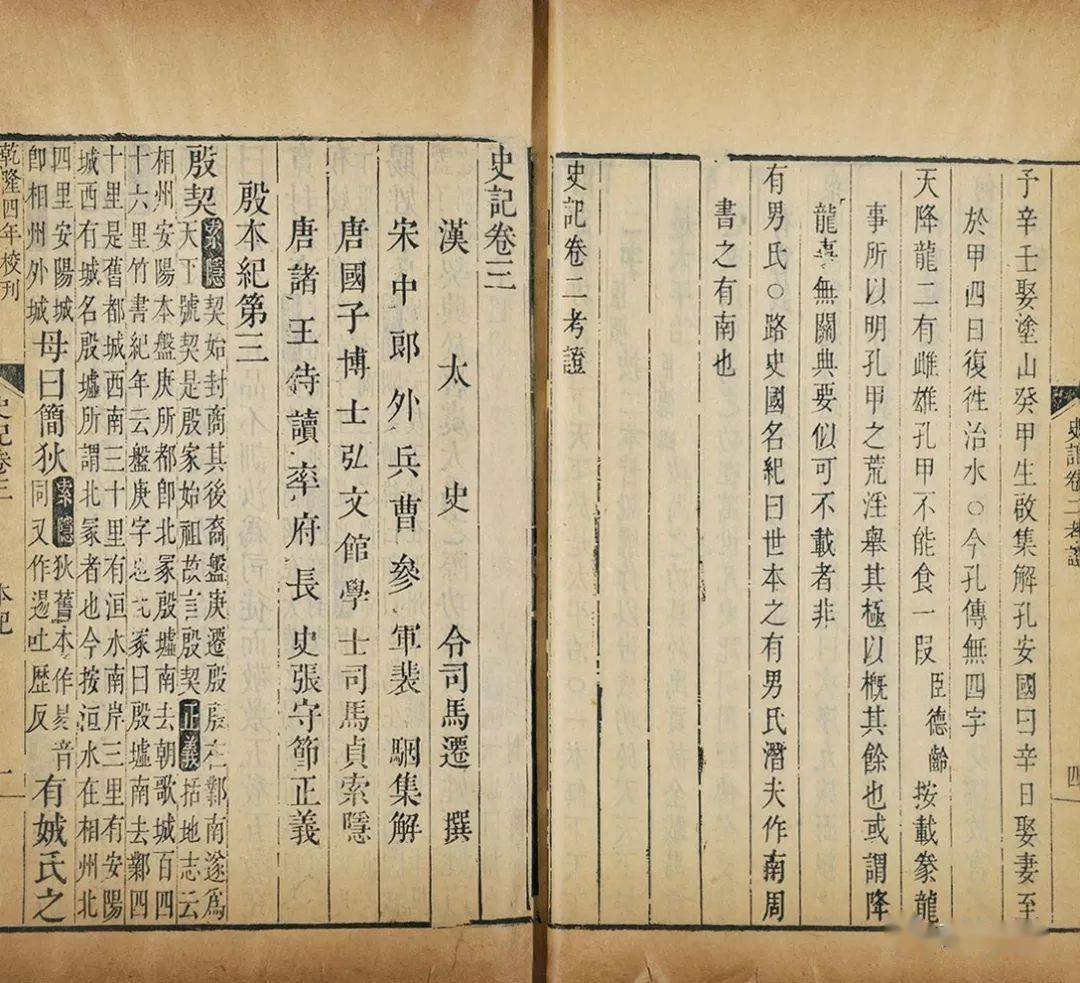 史記卷二考證　四
予辛壬娶塗山癸甲生啟集解孔安國曰辛日娶妻至
於甲四日復徃治水○今孔傳無四字
天降龍二有雌雄孔甲不能食一段臣德齡按載豢龍
事所以明孔甲之荒淫舉其極以概其餘也或謂降
龍嘉無關典要似可不載者非
有男氏○路史國名紀曰世本之有男氏潛夫作南周
書之有南也
史記卷二考證
史記卷三
漢太史令司馬遷撰
宋中郎外兵曹參軍裴駰集解
唐國子博士弘文館學士司馬貞索隱
唐諸王侍讀率府長史張守節正義
殷本紀第三
殷契索隱契始封商其後裔盤庚遷殷殷在鄴南遂爲
天下號契是殷家始祖故言殷契正義括地志云
相州安陽本盤庚所都卽北冢殷墟南去朝歌城百四
十六里竹書紀年云盤庚冢曰殷墟南去鄴四
十里是舊都城西南三十里有洹水南岸三里有安陽
城西有城名殷墟所謂北冢者也今按洹水在相州北
四里安陽城
卽相州外城
母曰簡狄
索隱狄舊本作音
同又作逷吐歷反
有娀氏之
乾隆四年校刊
史記卷三　本紀　一